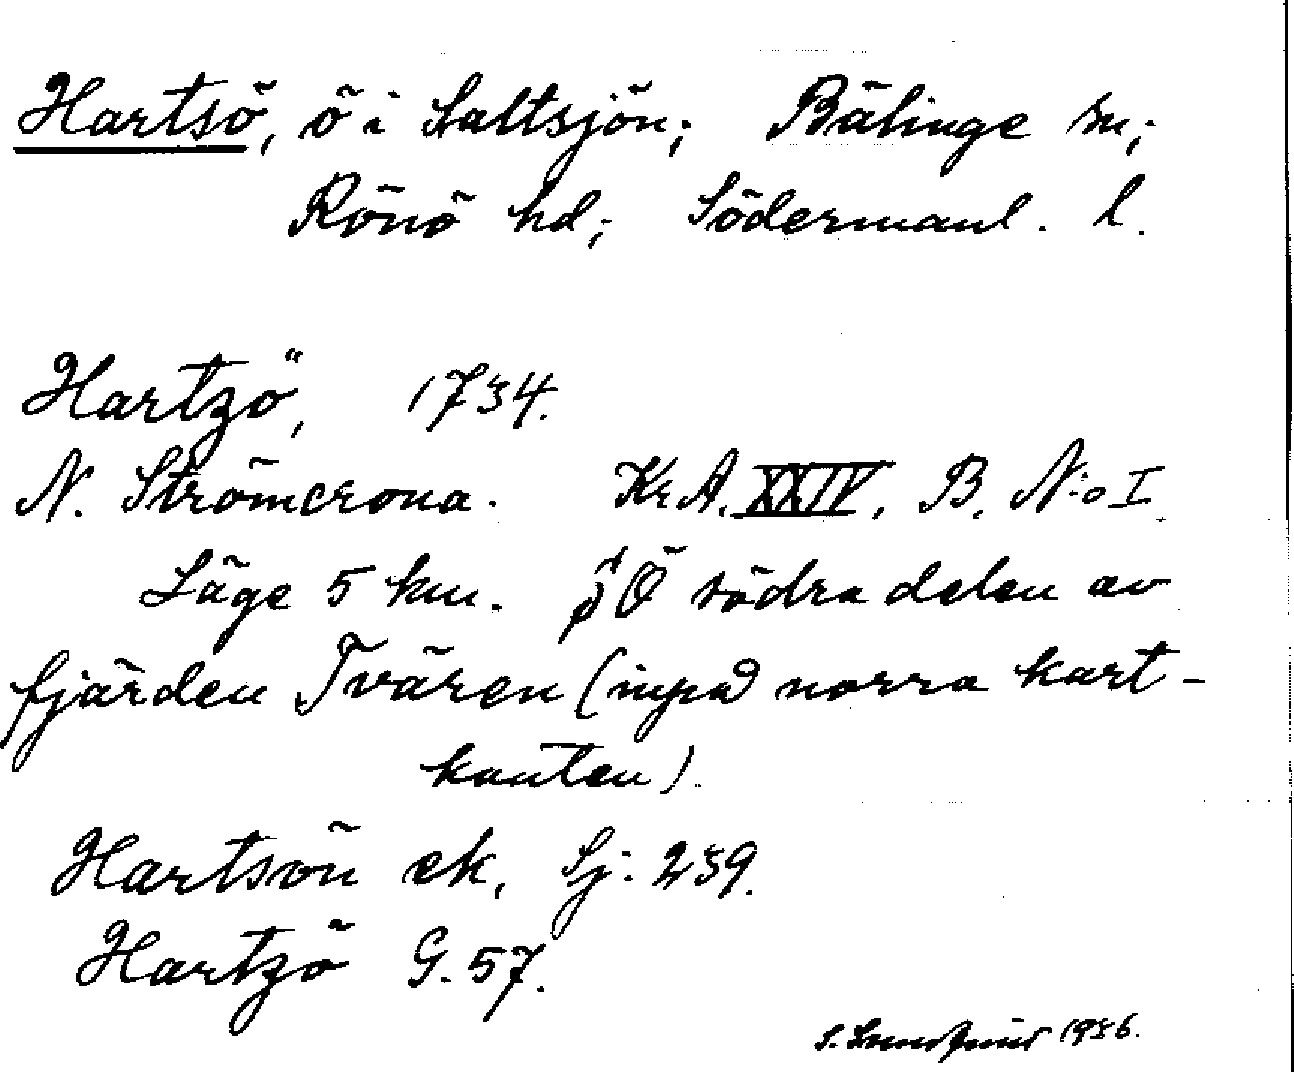 Hartsö, ö i Saltsjön; Bälinge sn;
Rönö hd; Södermanl. l.
Hartzö, 1734.
N. Strömcrona. Kr.A. XXIV, B. N:o I
Läge 5 km. Ö södra delen av
fjärden Tvären (inpå norra kart-
kanten).
Hartsön ek, Sj: 239.
Hartzö G. 57.
S. 1936.